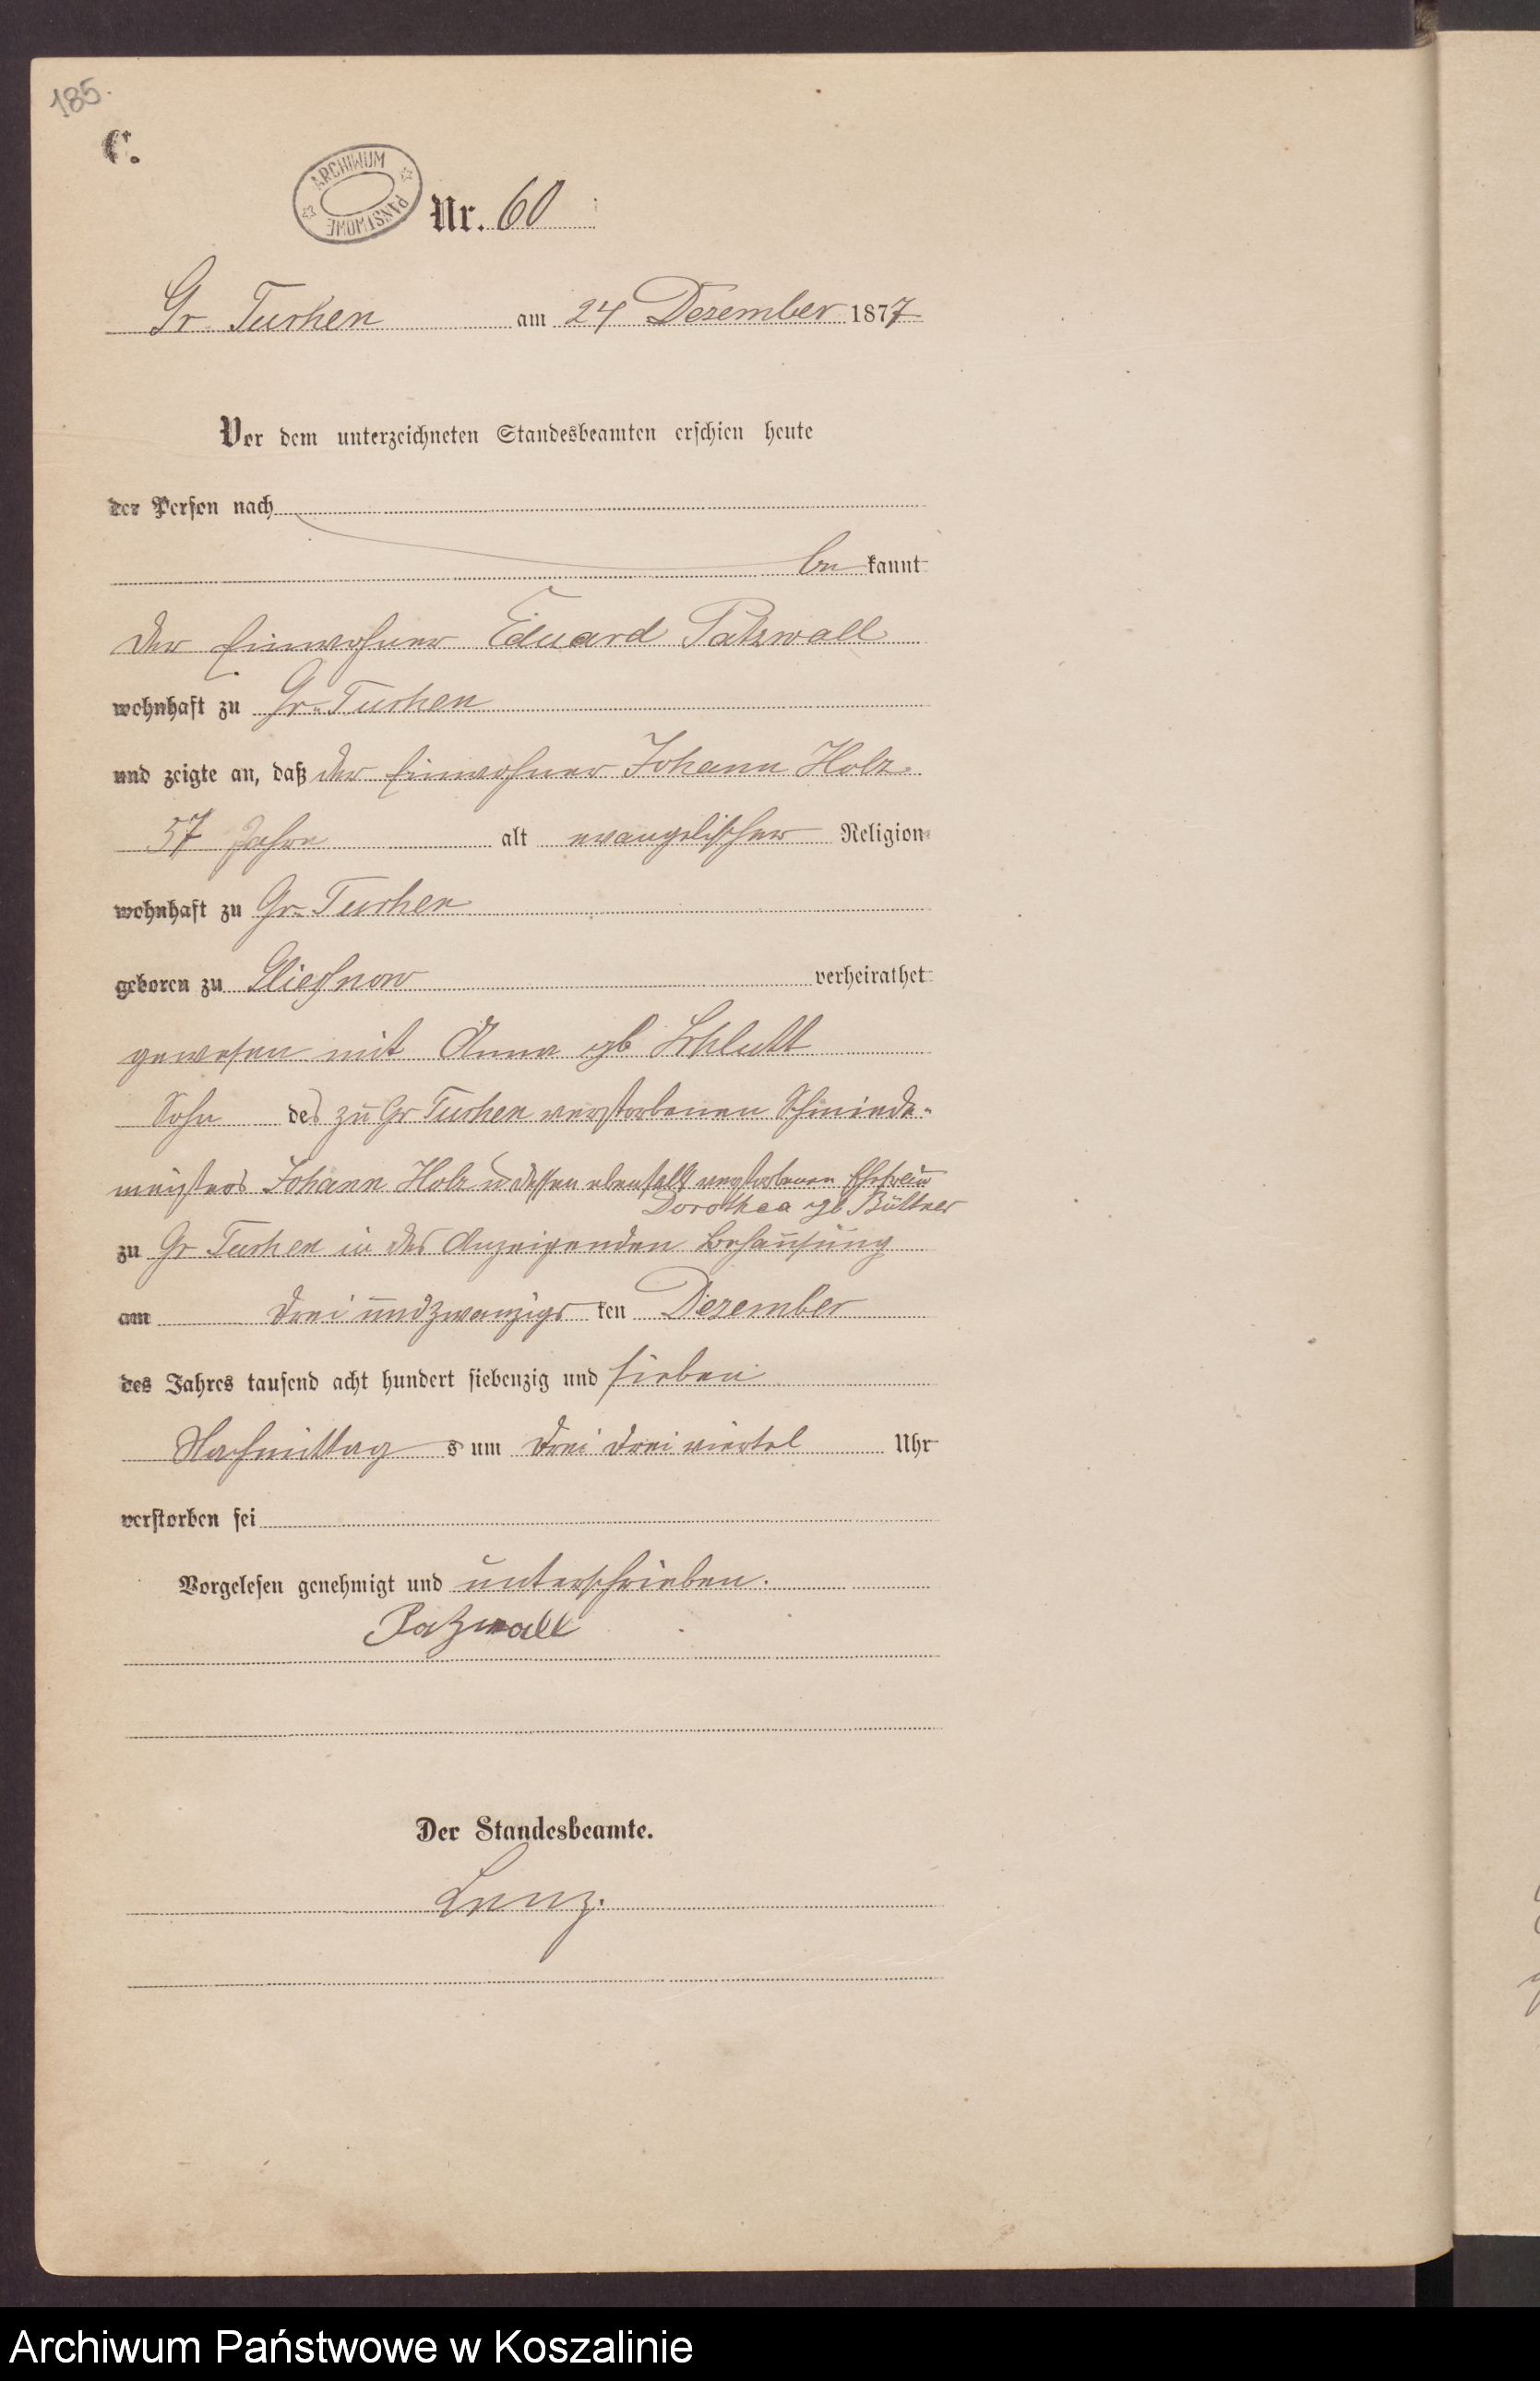 185.
C.
ARCHIWUM PAŃSTWOWE
Nr. 60
Gr. Tuchen am 24 Dezember 1877
Vor dem unterzeichneten Standesbeamten erschien heute
der Person nach
be kannt
der Einwohner Eduard Patzwall
wohnhaft zu Gr. Tuchen
und zeigte an, daß der Einwohner Johann Holz
57 Jahre alt evangelischer Religion
wohnhaft zu Gr. Tuchen
geboren zu Gliesnow verheirathet
gewesen mit Anna gb Schlutt
Sohn des zu Gr Tuchen verstorbenen Schmiede-
meisters Johann Holz u dessen ebenfalls verstorbenen Ehefrau
Dorothea gb Büttner
zu Gr Tuchen in des Anzeigenden Behausung
am drei und zwanzigs ten Dezember
des Jahres tausend acht hundert siebenzig und sieben
Nachmittag s um drei drei viertel Uhr
verstorben sei
Vorgelesen genehmigt und unterschrieben.
Patzwall
Der Standesbeamte.
Lenz.
Archiwum Państwowe w Koszalinie